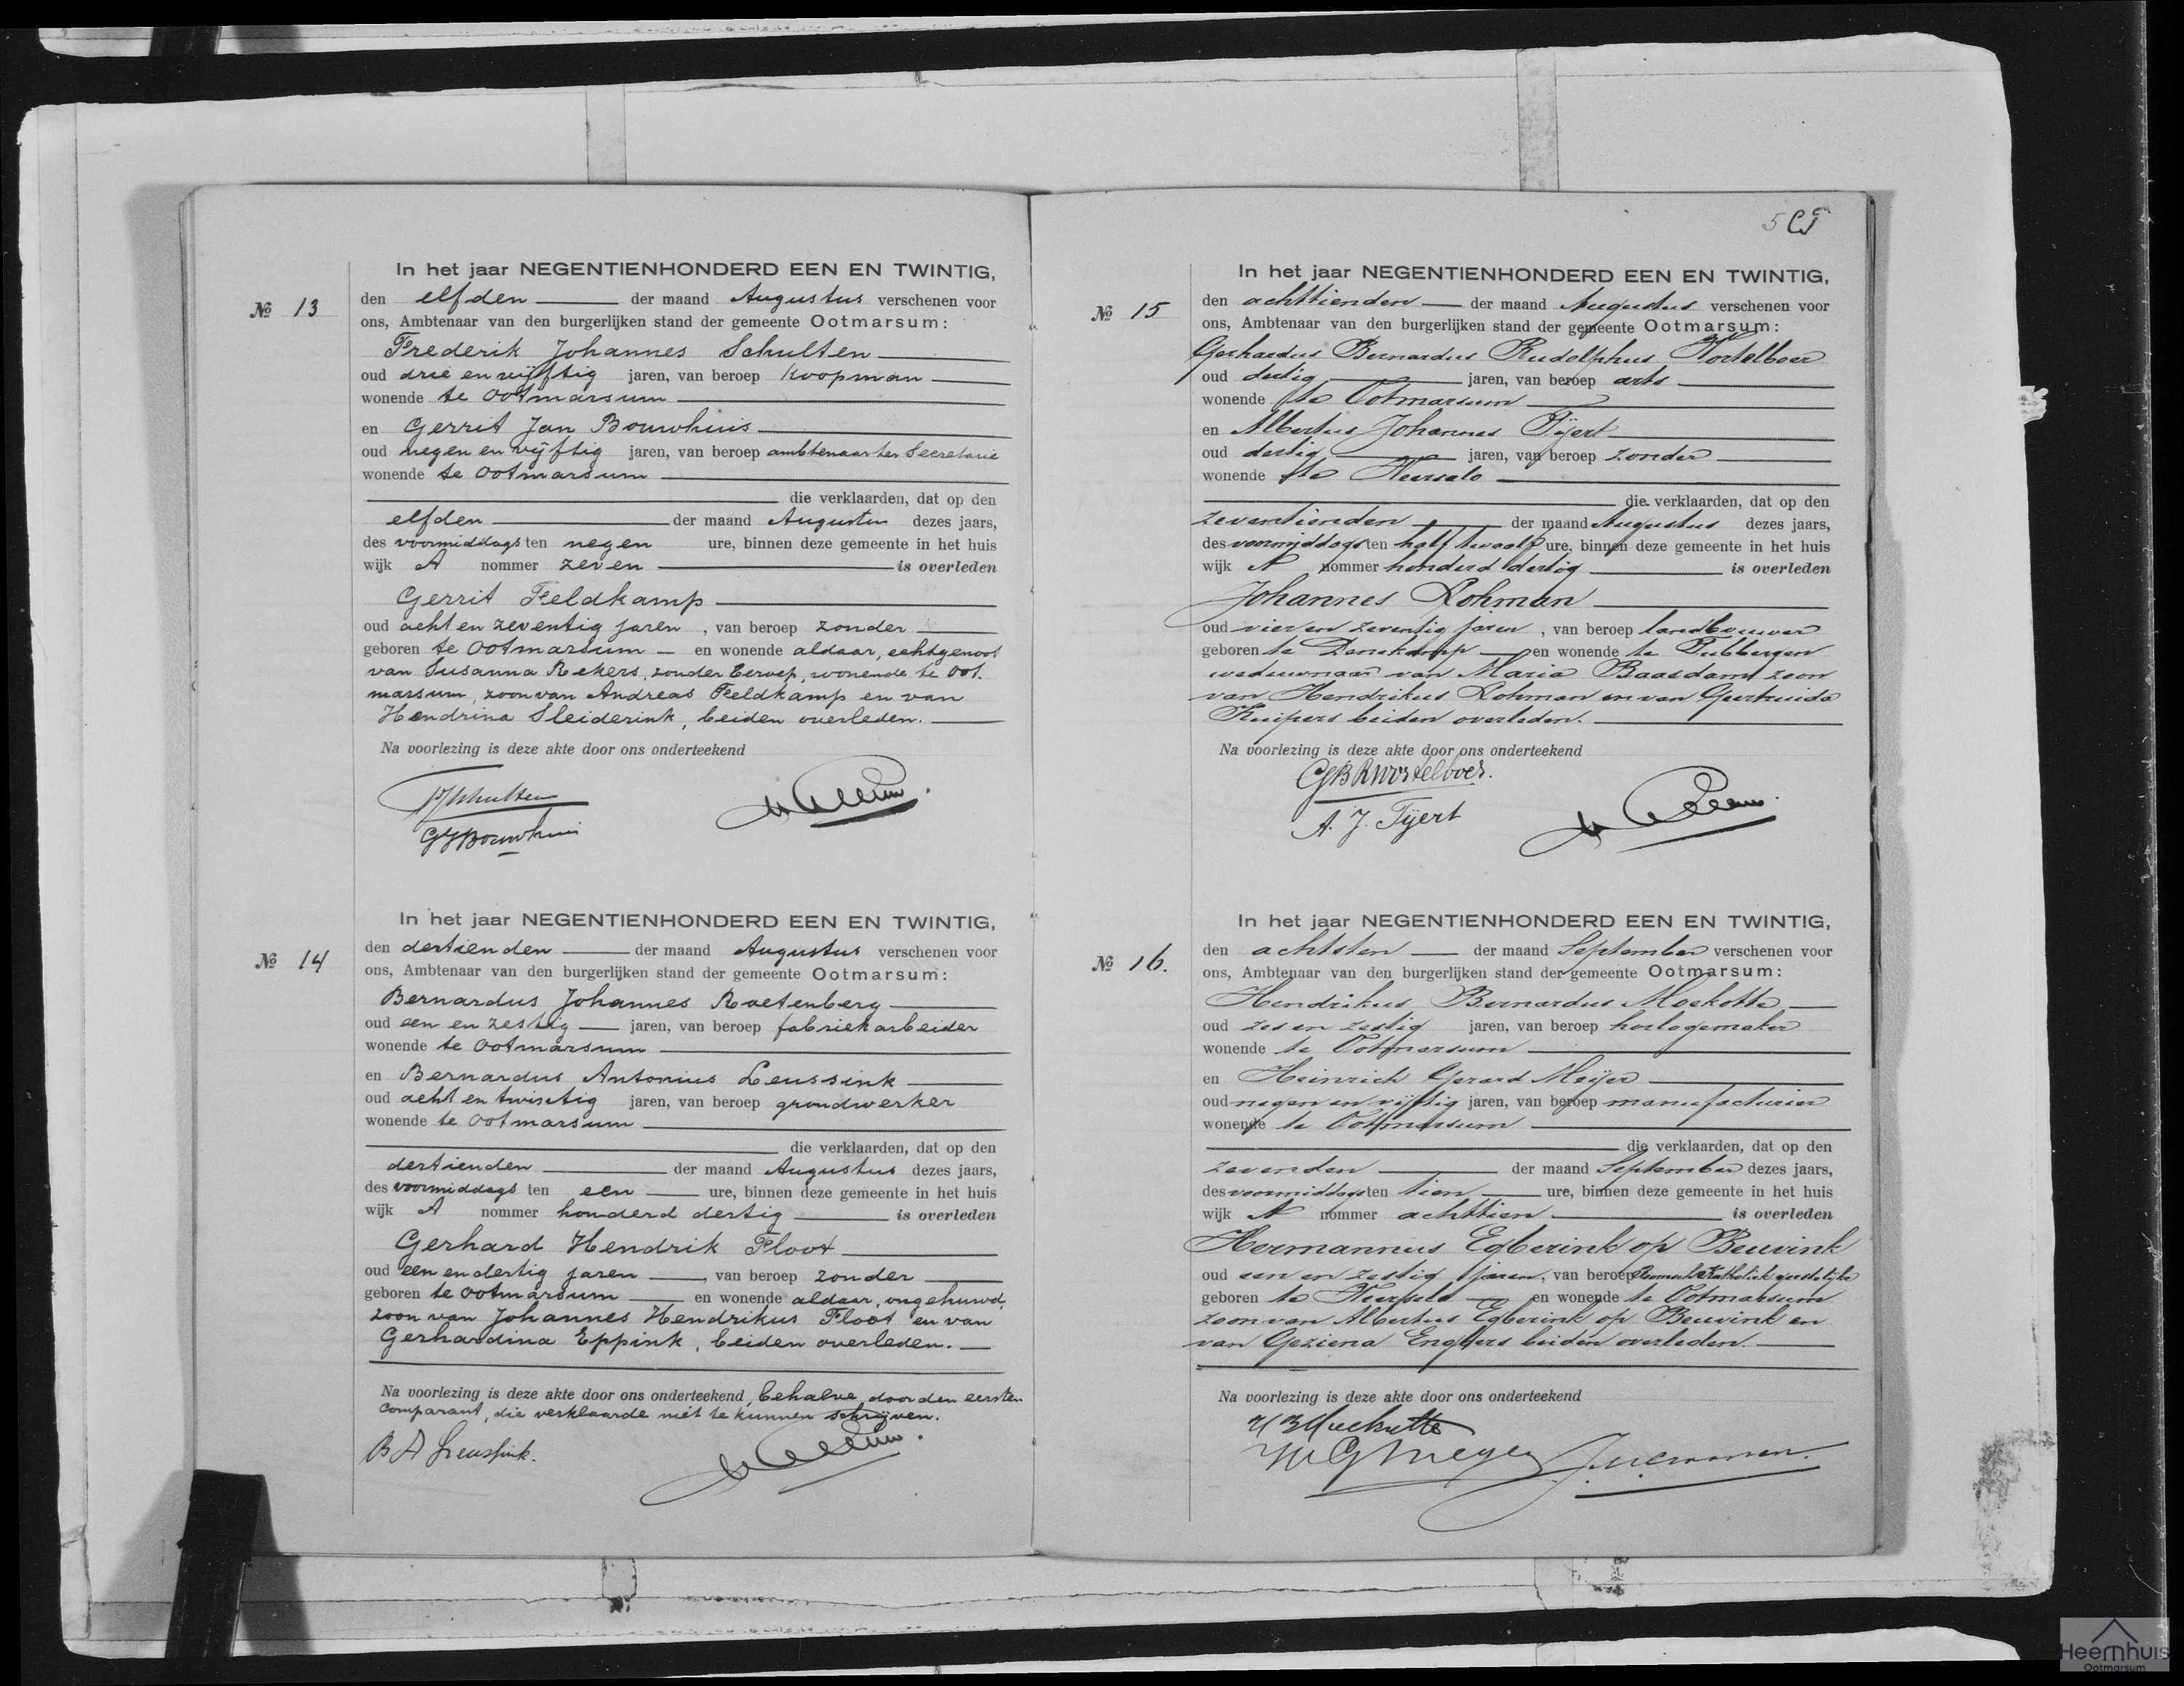 In het jaar NEGENTIENHONDERD EEN EN TWINTIG,
№ 13
den elfden der maand Augustus verschenen voor
ons, Ambtenaar van den burgerlijken stand der gemeente Ootmarsum:
Frederik Johannes Schulten
oud drie en vijftig jaren, van beroep koopman
wonende te Ootmarsum
en Gerrit Jan Bouwhuis
oud negen en vijftig jaren, van beroep ambtenaar ter Secretarie
wonende te Ootmarsum
die verklaarden, dat op den
elfden der maand Augustus dezes jaars,
des voormiddags ten negen ure, binnen deze gemeente in het huis
wijk A nommer zeven is overleden
Gerrit Feldkamp
oud acht en zeventig jaren, van beroep zonder
geboren te Ootmarsum en wonende aldaar, echtgenoot
van Susanna Rekers, zonder beroep, wonende te Oot.
marsum, zoon van Andreas Feldkamp en van
Hendrina Sleiderink, beiden overleden.
Na voorlezing is deze akte door ons onderteekend
FJSchulten
GJBouwhuis
In het jaar NEGENTIENHONDERD EEN EN TWINTIG,
№ 14
den dertienden der maand Augustus verschenen voor
ons, Ambtenaar van den burgerlijken stand der gemeente Ootmarsum:
Bernardus Johannes Roetenberg
oud een en zestig jaren, van beroep fabriekarbeider
wonende te Ootmarsum
en Bernardus Antonius Leussink
oud acht en twintig jaren, van beroep grondwerker
wonende te Ootmarsum
die verklaarden, dat op den
dertienden der maand Augustus dezes jaars,
des voormiddags ten een ure, binnen deze gemeente in het huis
wijk A nommer honderd dertig is overleden
Gerhard Hendrik Floot
oud een en dertig jaren, van beroep zonder
geboren te Ootmarsum en wonende aldaar, ongehuwd,
zoon van Johannes Hendrikus Floot en van
Gerhardina Eppink, beiden overleden.
Na voorlezing is deze akte door ons onderteekend, behalve door den eersten
comparant, die verklaarde niet te kunnen schrijven.
B A Leussink.
5
In het jaar NEGENTIENHONDERD EEN EN TWINTIG,
№ 15
den achttienden der maand Augustus verschenen voor
ons, Ambtenaar van den burgerlijken stand der gemeente Ootmarsum:
Gerhardus Bernardus Rudolphus Wortelboer
oud dertig jaren, van beroep arts
wonende te Ootmarsum
en Albertus Johannes Tijert
oud dertig jaren, van beroep zonder
wonende te Weerselo
die verklaarden, dat op den
zeventienden der maand Augustus dezes jaars,
des voormiddags ten half twaalf ure, binnen deze gemeente in het huis
wijk A nommer honderd dertig is overleden
Johannes Lohman
oud vier en zeventig jaren, van beroep landbouwer
geboren te Denekamp en wonende te Tubbergen
weduwnaar van Maria Baasdam zoon
van Hendrikus Lohman en van Geertruida
Kuipers beiden overleden.
Na voorlezing is deze akte door ons onderteekend
GBRWortelboer.
A. J. Tijert
In het jaar NEGENTIENHONDERD EEN EN TWINTIG,
№ 16.
den achtsten der maand September verschenen voor
ons, Ambtenaar van den burgerlijken stand der gemeente Ootmarsum:
Hendrikus Bernardus Moekotte
oud zes en zestig jaren, van beroep horlogemaker
wonende te Ootmarsum
en Heinrich Gerard Meijer
oud negen en vijftig jaren, van beroep manufacturier
wonende te Ootmarsum
die verklaarden, dat op den
zevenden der maand September dezes jaars,
des voormiddags ten tien ure, binnen deze gemeente in het huis
wijk A nommer achttien is overleden
Hermannus Egberink op Beuvink
oud een en zestig jaren, van beroep Roomsch Katholiek geestelijke
geboren te Weerselo en wonende te Ootmarsum
zoon van Albertus Egberink op Beuvink en
van Geziena Engbers beiden overleden.
Na voorlezing is deze akte door ons onderteekend
H B Moekotte
H G Meyer
Heemhuis
Ootmarsum